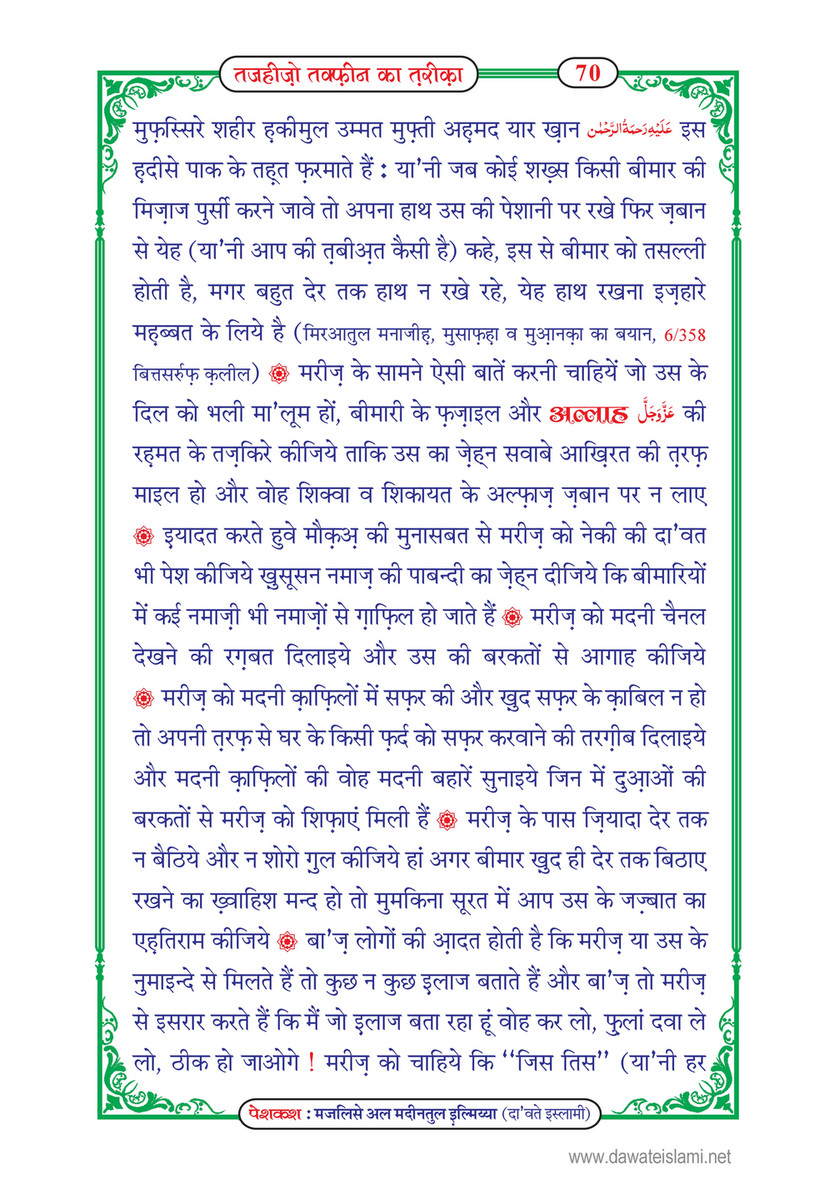 तजहीज़ो तक्फ़ीन का त़रीक़ा
70
मुफ़स्सिरे शहीर ह़कीमुल उम्मत मुफ़्ती अह़मद यार ख़ान عَلَيْهِ رَحْمَةُ الرَّحْمٰن इस
ह़दीसे पाक के तह़्त फ़रमाते हैं : या'नी जब कोई शख़्स किसी बीमार की
मिज़ाज पुर्सी करने जावे तो अपना हाथ उस की पेशानी पर रखे फिर ज़बान
से येह (या'नी आप की त़बीअ़त कैसी है) कहे, इस से बीमार को तसल्ली
होती है, मगर बहुत देर तक हाथ न रखे रहे, येह हाथ रखना इज़्हारे
मह़ब्बत के लिये है (मिरआतुल मनाजीह़, मुसाफ़ह़ा व मुआ़नक़ा का बयान, 6/358
बित्तसर्रुफ़ क़लील) मरीज़ के सामने ऐसी बातें करनी चाहियें जो उस के
दिल को भली मा'लूम हों, बीमारी के फ़ज़ाइल और अल्लाह عَزَّوَجَلَّ की
रह़मत के तज़्किरे कीजिये ताकि उस का ज़ेह्न सवाबे आख़िरत की त़रफ़
माइल हो और वोह शिक्वा व शिकायत के अल्फ़ाज़ ज़बान पर न लाए
इ़यादत करते हुवे मौक़अ़ की मुनासबत से मरीज़ को नेकी की दा'वत
भी पेश कीजिये ख़ुसूसन नमाज़ की पाबन्दी का ज़ेह्न दीजिये कि बीमारियों
में कई नमाज़ी भी नमाज़ों से ग़ाफ़िल हो जाते हैं मरीज़ को मदनी चैनल
देखने की रग़बत दिलाइये और उस की बरकतों से आगाह कीजिये
मरीज़ को मदनी क़ाफ़िलों में सफ़र की और ख़ुद सफ़र के क़ाबिल न हो
तो अपनी त़रफ़ से घर के किसी फ़र्द को सफ़र करवाने की तरग़ीब दिलाइये
और मदनी क़ाफ़िलों की वोह मदनी बहारें सुनाइये जिन में दुआ़ओं की
बरकतों से मरीज़ को शिफ़ाएं मिली हैं मरीज़ के पास ज़ियादा देर तक
न बैठिये और न शोरो ग़ुल कीजिये हां अगर बीमार ख़ुद ही देर तक बिठाए
रखने का ख़्वाहिश मन्द हो तो मुमकिना सूरत में आप उस के जज़्बात का
एह़तिराम कीजिये बा'ज़ लोगों की आ़दत होती है कि मरीज़ या उस के
नुमाइन्दे से मिलते हैं तो कुछ न कुछ इ़लाज बताते हैं और बा'ज़ तो मरीज़
से इसरार करते हैं कि मैं जो इ़लाज बता रहा हूं वोह कर लो, फ़ुलां दवा ले
लो, ठीक हो जाओगे ! मरीज़ को चाहिये कि ‘‘जिस तिस’’ (या'नी हर
पेशकश : मजलिसे अल मदीनतुल इ़ल्मिय्या (दा'वते इस्लामी)
www.dawateislami.net